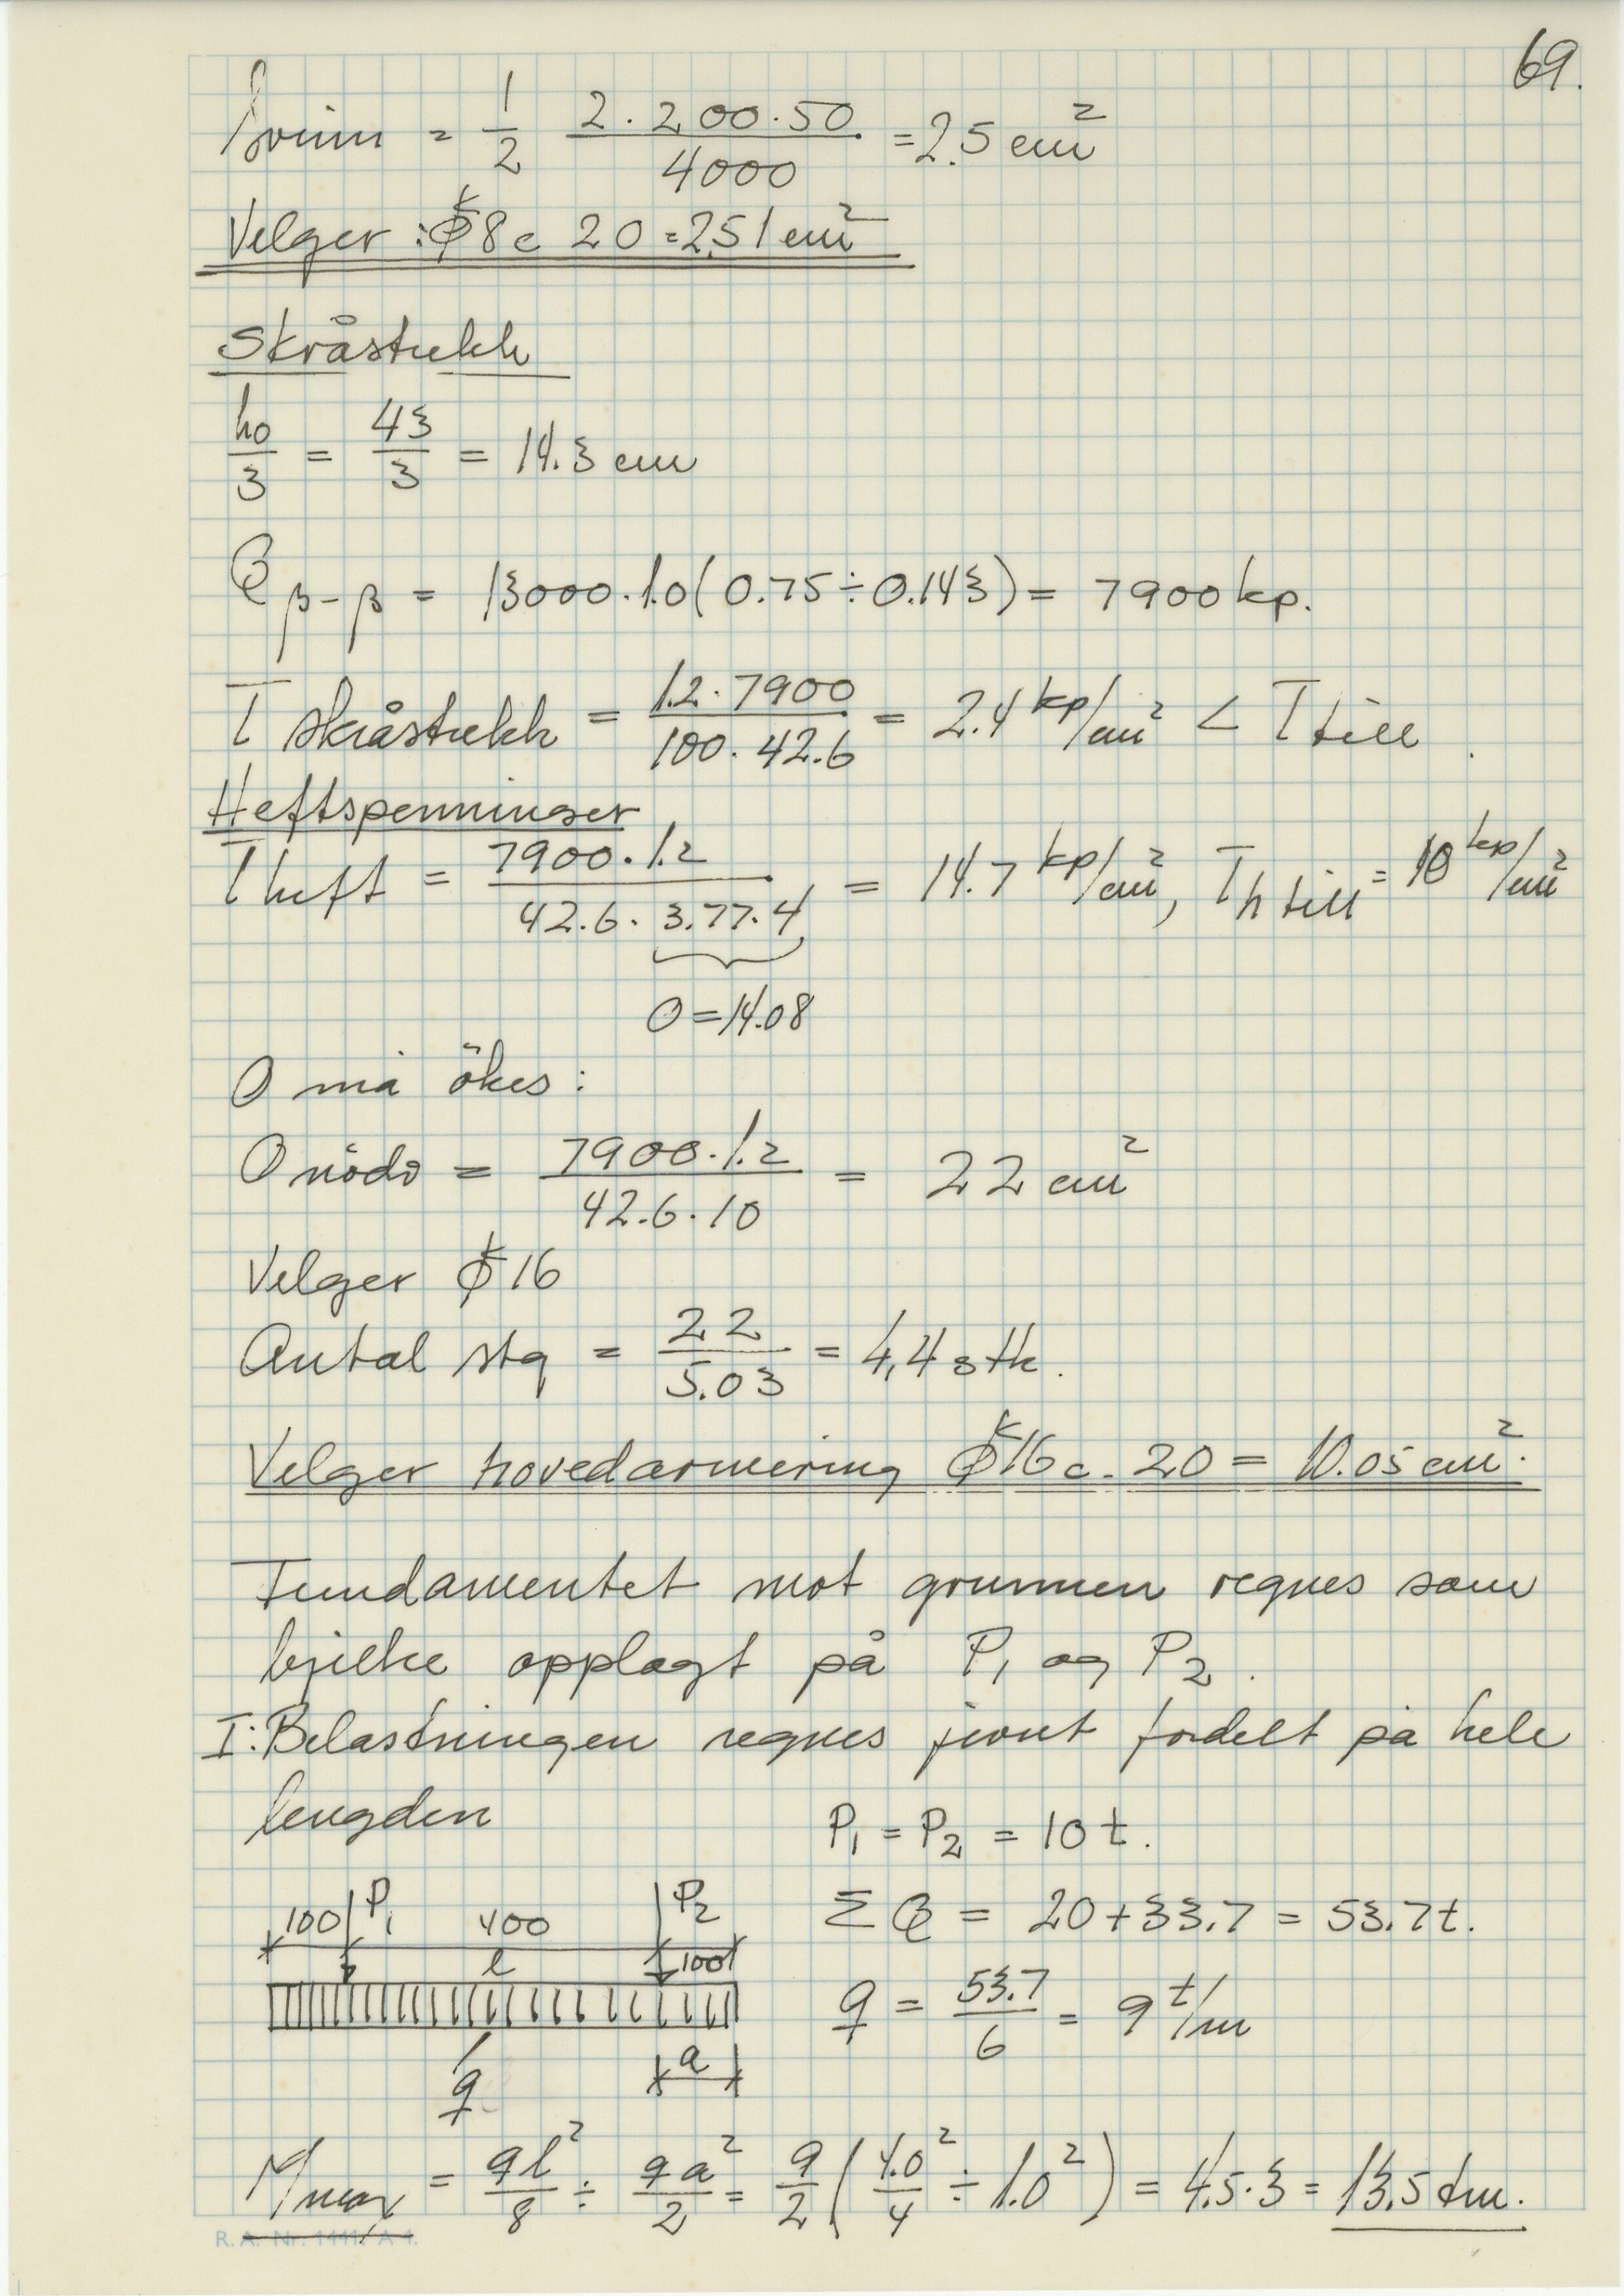 69.
fsvinn = 1/2 2.200.50/4000 = 2.5 cm²
Velger : ϕk8 c 20 = 2,51 cm²
Skråstrekk
ho/3 = 43/3 = 14.3 cm
Qβ-β = 13000.1.0(0.75÷0.143) = 7900 kp.
τ skråstrekk = 1.2.7900/100.42.6 = 2.4 kp/cm² < τ till.
Heftspenninger
τ heft = 7900.1.2/42.6.3.77.4 = 14.7 kp/cm², τh till = 10 kp/cm²
O=14.08
O må økes :
O nödv = 7900.1.2/42.6.10 = 22 cm²
Velger ϕk16
Antal stg = 22/5.03 = 4,4 stk.
Velger hovedarmering ϕk16 c. 20 = 10.05 cm².
Fundamentet mot grunnen regnes som
bjelke opplagt på P1 og P2.
I: Belastningen regnes jevnt fordelt på hele
lengden
P1 = P2 = 10 t.
100 P1 400 P2
l 100
ΣQ = 20+33.7 = 53.7t.
q = 53.7/6 = 9 t/m
a
q
Mmax = ql²/8 ÷ qa²/2 = 9/2 (4.0²/4 ÷ 1.0²) = 4.5.3 = 13.5 tm.
R. A. Nr. 1441/A 4.